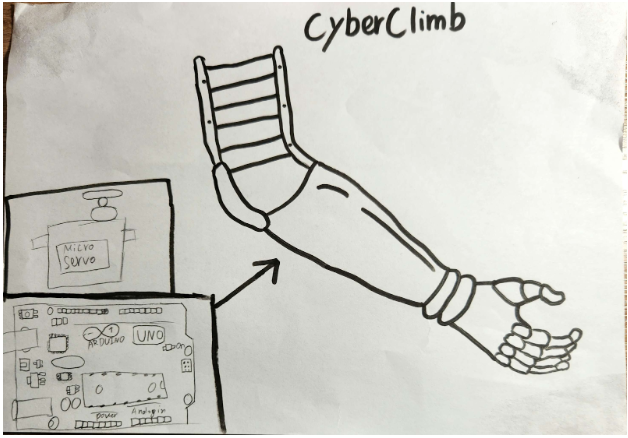 CyberClimb
Micro
Servo
ARDUINO
UNO
ON
Power
Analog in